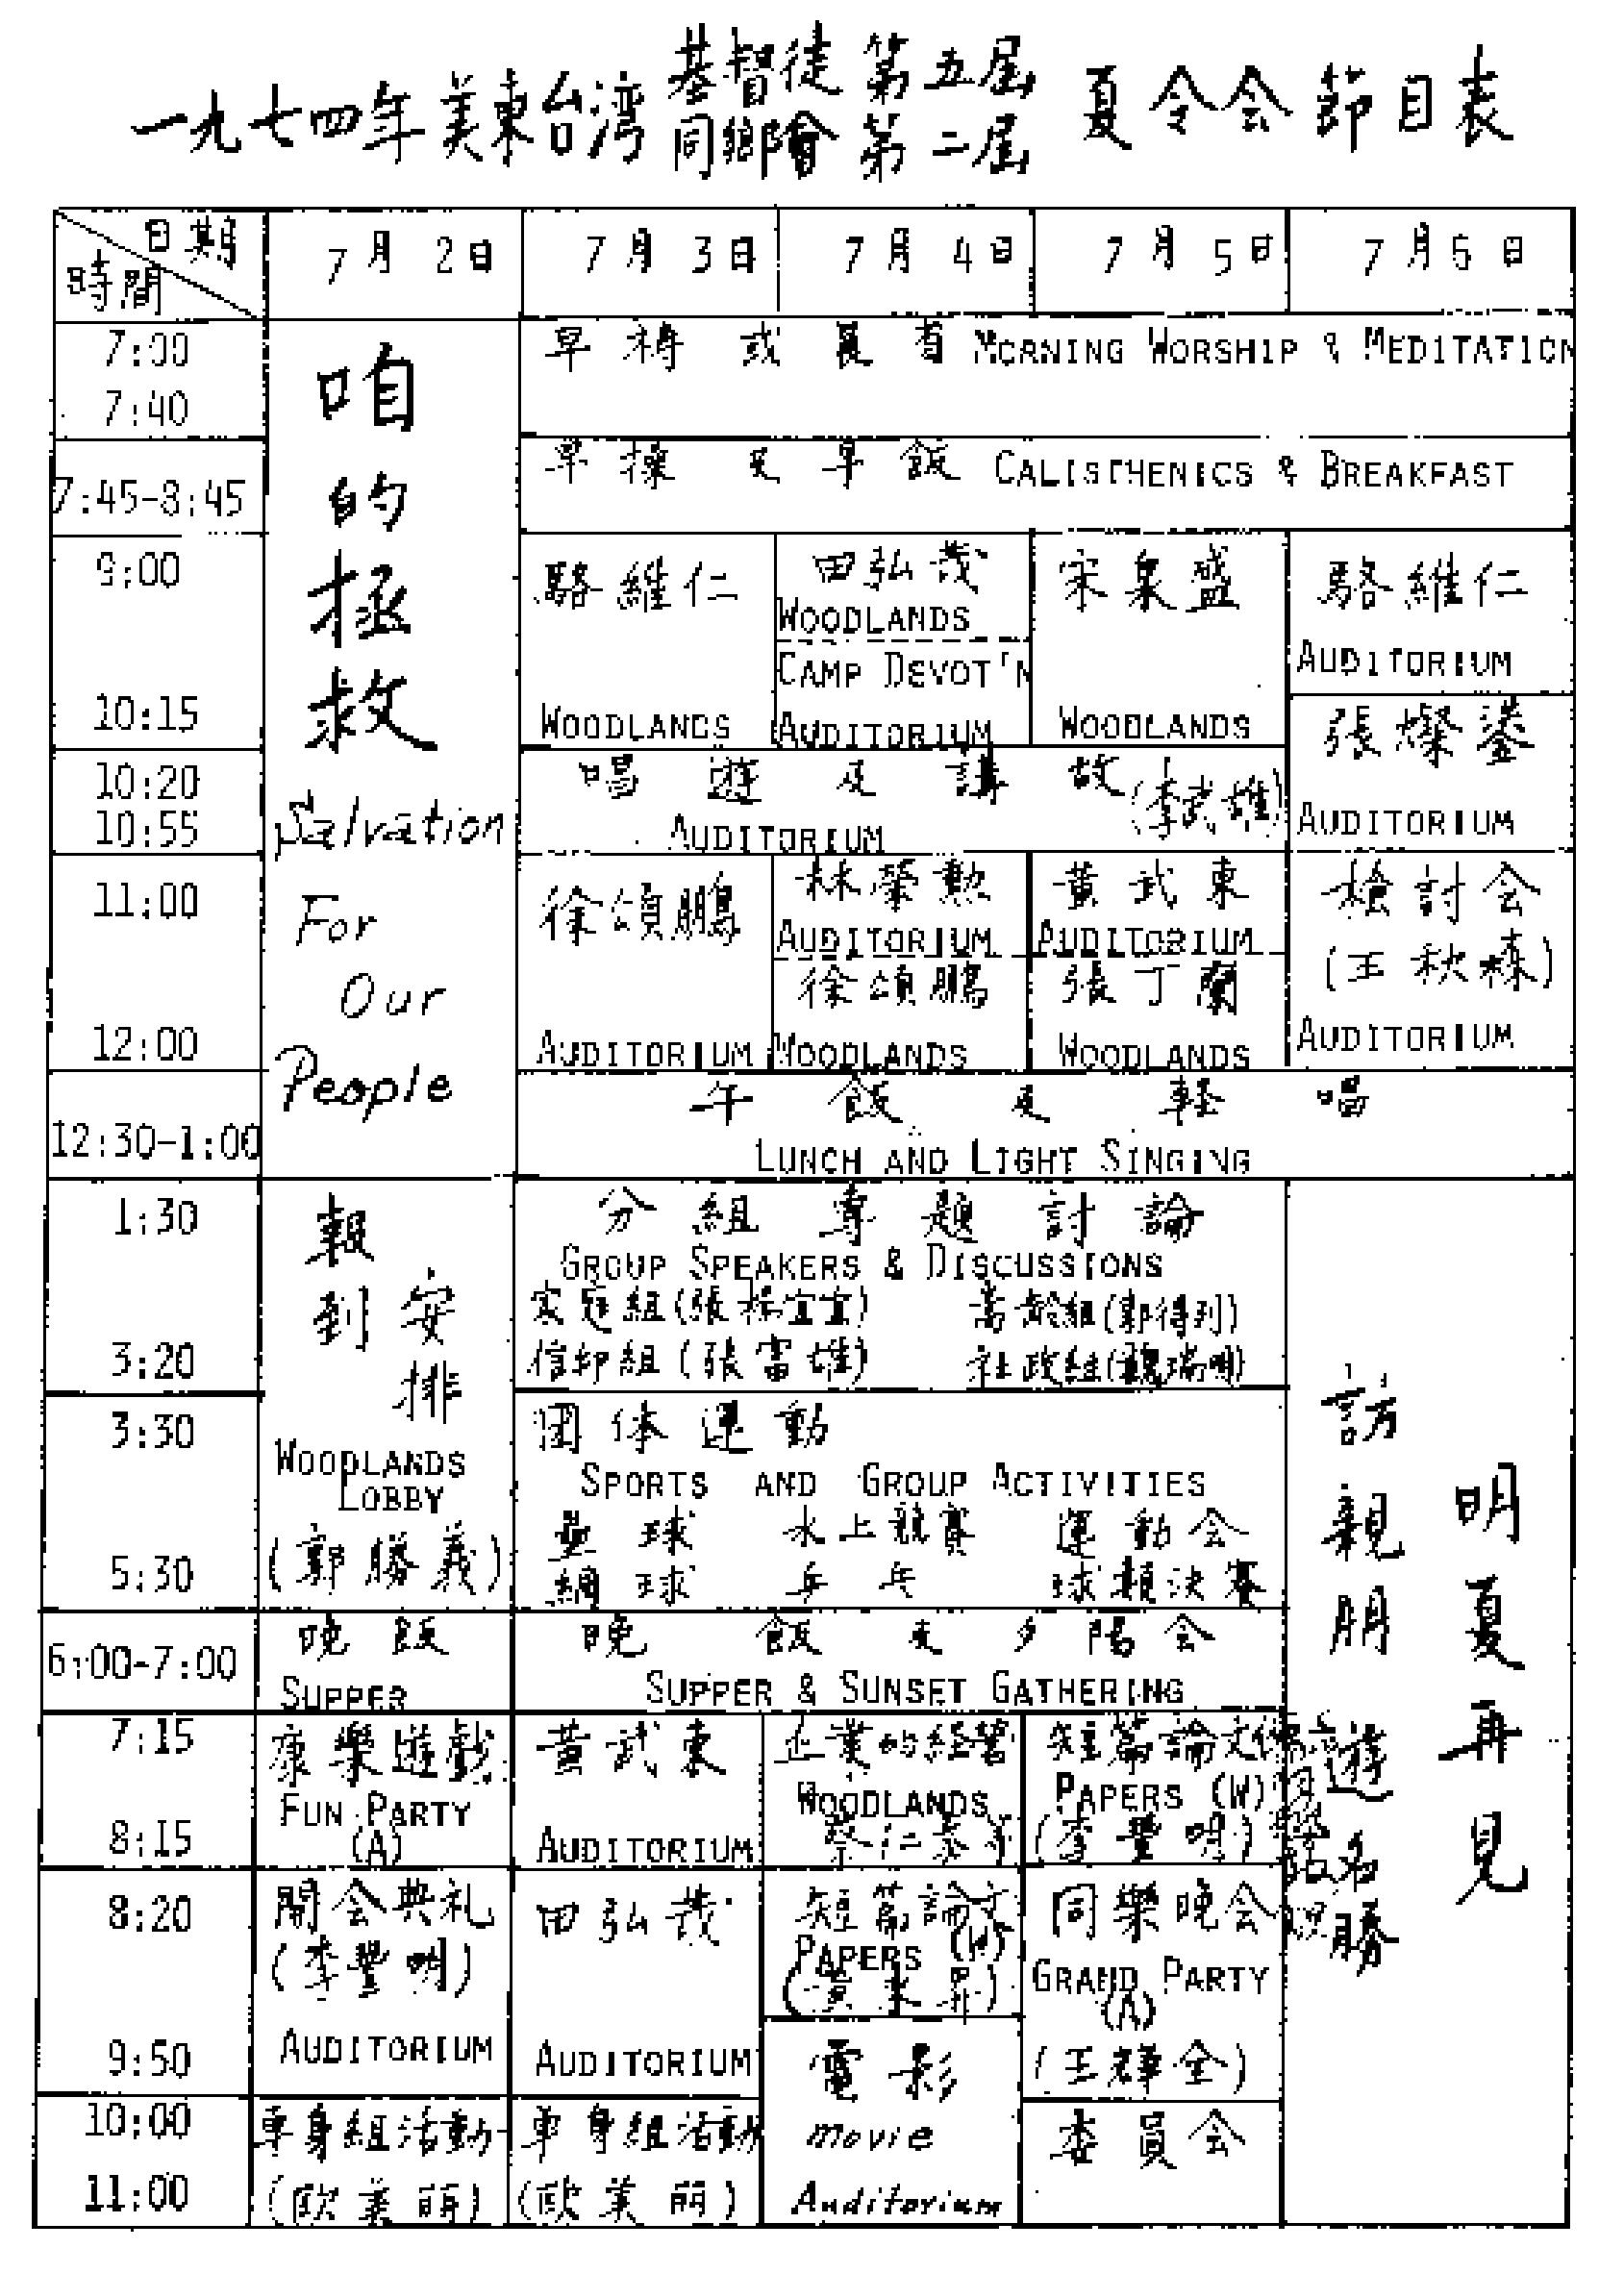 一九七四年美東台湾
基督徒第五屆
同鄉會第二屆
夏令会節目表
日期
時間
7月2日
7月3日
7月4日
7月5日
7月6日
7:00
7:40
咱的拯救
Salvation
For
Our
People
早禱或晨省 MORNING WORSHIP & MEDITATION
7:45-8:45
早操及早飯 CALISTHENICS & BREAKFAST
9:00
10:15
駱維仁
WOODLANDS
田弘茂
WOODLANDS
CAMP DEVOT'N
AUDITORIUM
宋泉盛
WOODLANDS
駱維仁
AUDITORIUM
張燦鍙
AUDITORIUM
10:20
10:55
唱遊及講故
AUDITORIUM
(李武雄)
11:00
12:00
徐頌鵬
AUDITORIUM
林榮勲
AUDITORIUM
徐頌鵬
WOODLANDS
黃武東
AUDITORIUM
張丁蘭
WOODLANDS
檢討会
(王秋森)
AUDITORIUM
12:30-1:00
午飯及輕唱
LUNCH AND LIGHT SINGING
1:30
3:20
報到安排
WOODLANDS
LOBBY
(郭勝義)
分組專題討論
GROUP SPEAKERS & DISCUSSIONS
信仰組(張富雄)
3:30
5:30
团体運動
SPORTS AND GROUP ACTIVITIES
壘球 水上競賽 運動会
網球 乒乓 球類決賽
訪親朋遊名勝
明夏再見
6:00-7:00
晚飯
SUPPER
晚飯及夕陽会
SUPPER & SUNSET GATHERING
7:15
8:15
康樂遊戲
FUN PARTY
(A)
黃武東
AUDITORIUM
企業的経営
WOODLANDS
短篇論文
PAPERS (W)
(李豊明)
8:20
9:50
開会典礼
(李豊明)
AUDITORIUM
田弘茂
AUDITORIUM
短篇論文
PAPERS (W)
同樂晚会
GRAND PARTY
(A)
(王輝全)
電影
movie
Auditorium
10:00
11:00
單身組活動
(歐美丽)
單身組活動
(歐美丽)
委員会